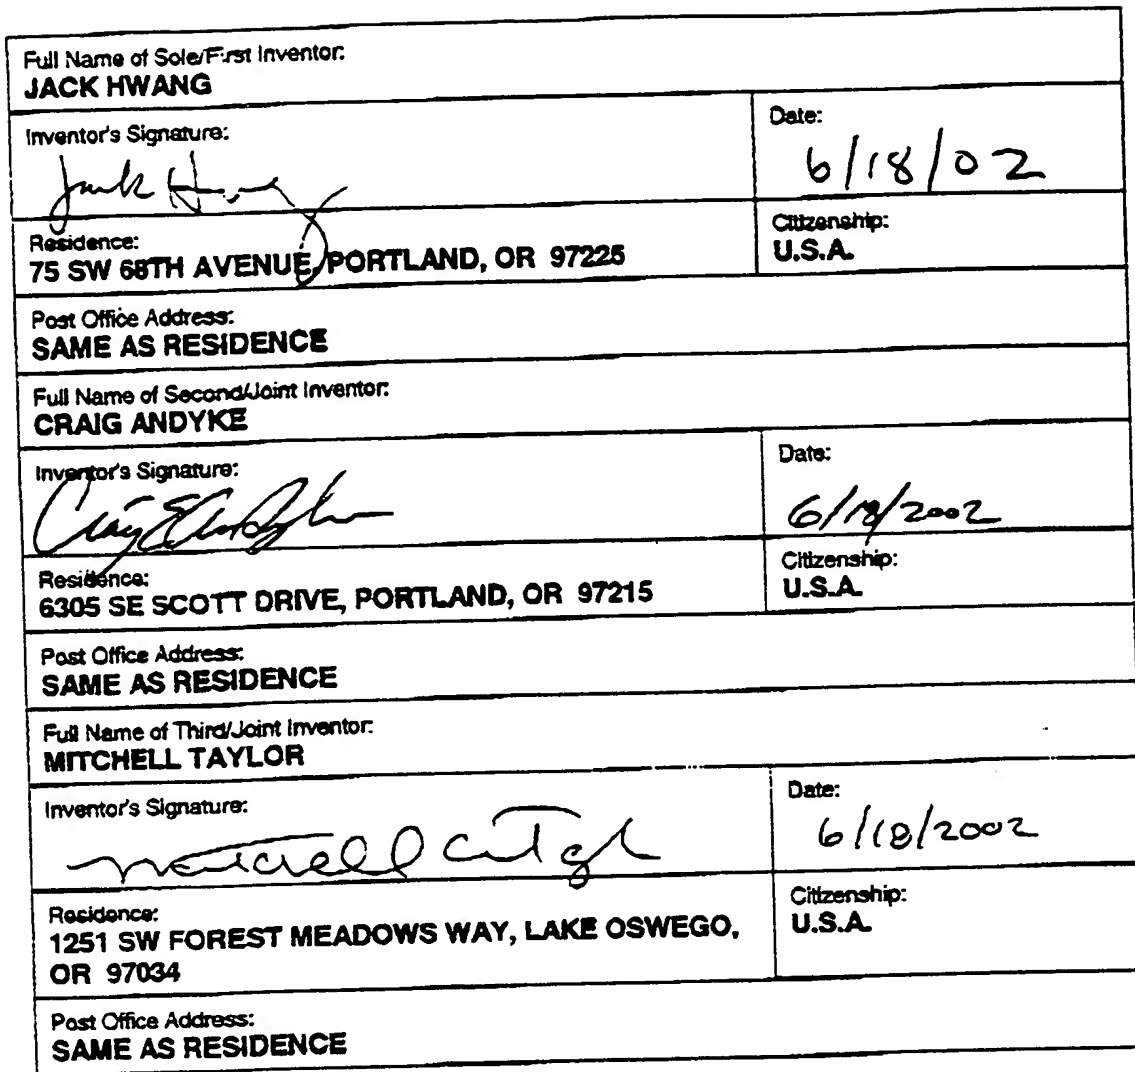 Full Name of Sole/First Inventor:
JACK HWANG
Inventor's Signature:
Jack Hwang
Date:
6/18/02
Residence:
75 SW 68TH AVENUE, PORTLAND, OR 97225
Citizenship:
U.S.A.
Post Office Address:
SAME AS RESIDENCE
Full Name of Second/Joint Inventor:
CRAIG ANDYKE
Inventor's Signature:
Craig E Andyke
Date:
6/18/2002
Residence:
6305 SE SCOTT DRIVE, PORTLAND, OR 97215
Citizenship:
U.S.A.
Post Office Address:
SAME AS RESIDENCE
Full Name of Third/Joint Inventor:
MITCHELL TAYLOR
Inventor's Signature:
Mitchell C Taylor
Date:
6/18/2002
Residence:
1251 SW FOREST MEADOWS WAY, LAKE OSWEGO,
OR 97034
Citizenship:
U.S.A.
Post Office Address:
SAME AS RESIDENCE